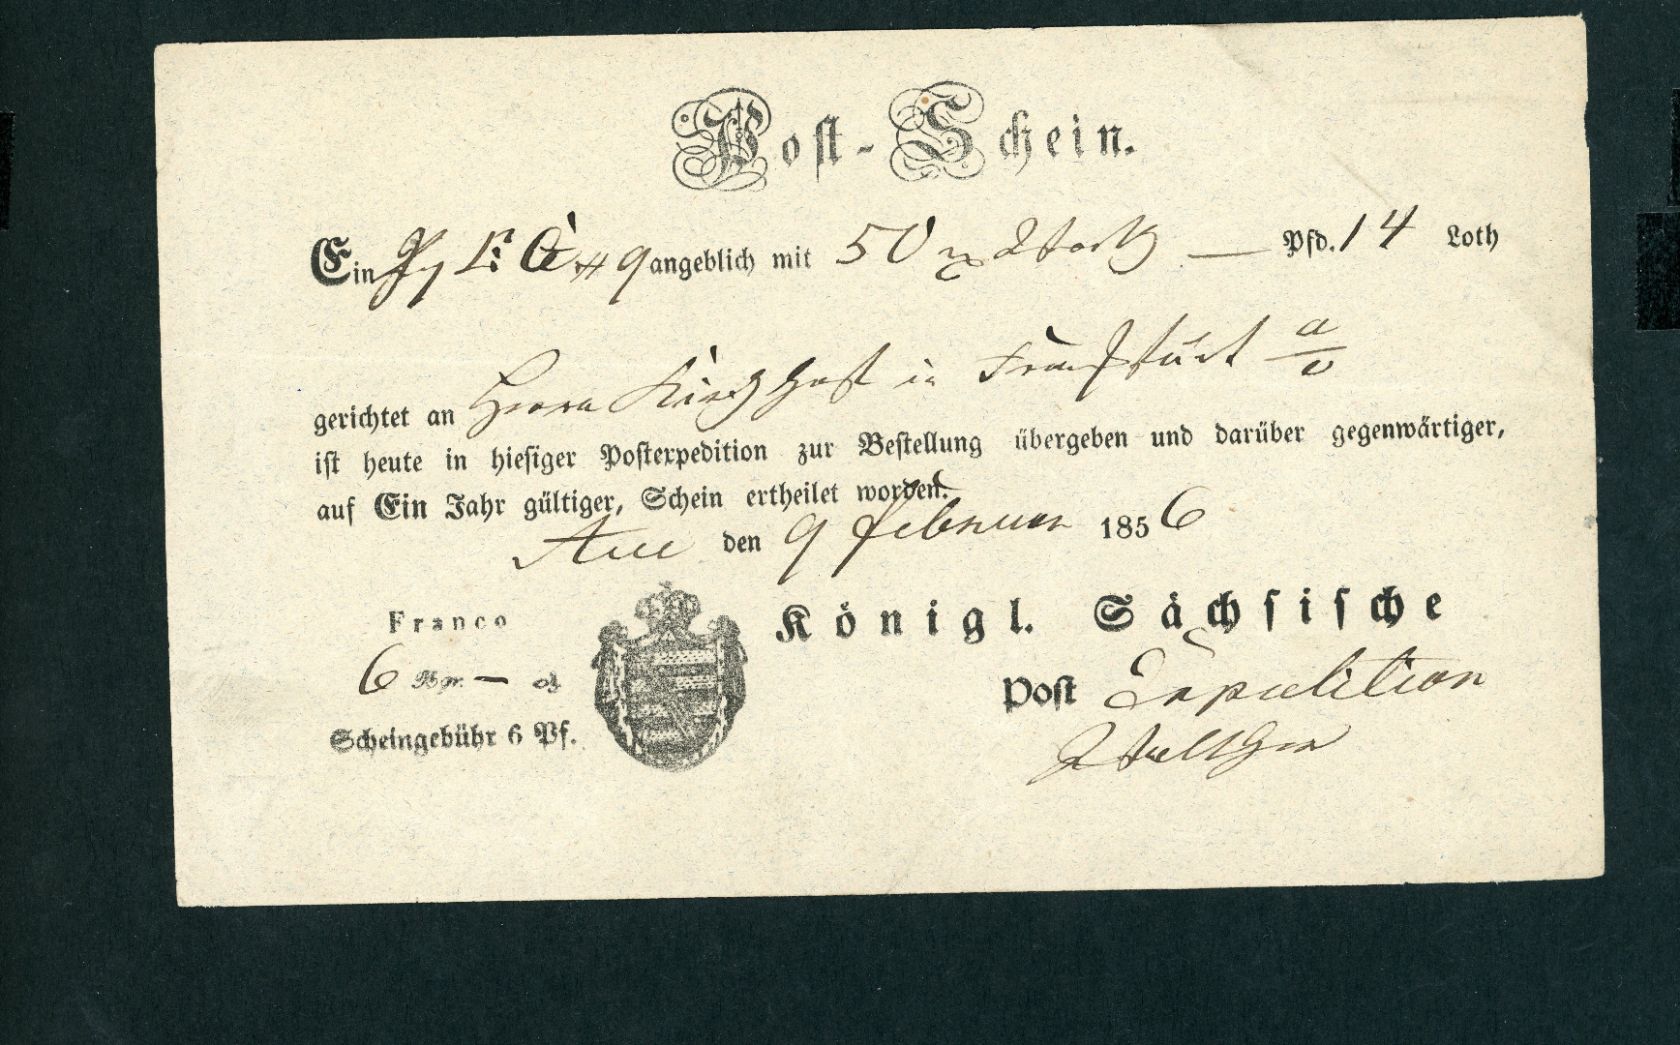 Post-Schein.
Ein angeblich mit 50 Pfd. 14 Loth
gerichtet an Herrn in Frankfurt a/o
ist heute in hiesiger Postexpedition zur Bestellung übergeben und darüber gegenwärtiger,
auf Ein Jahr gültiger, Schein ertheilet worden.
Aue den 9 februar 1856
Franco
6 Ngr. —
Scheingebühr 6 Pf.
Königl. Sächsische
Post Expedition